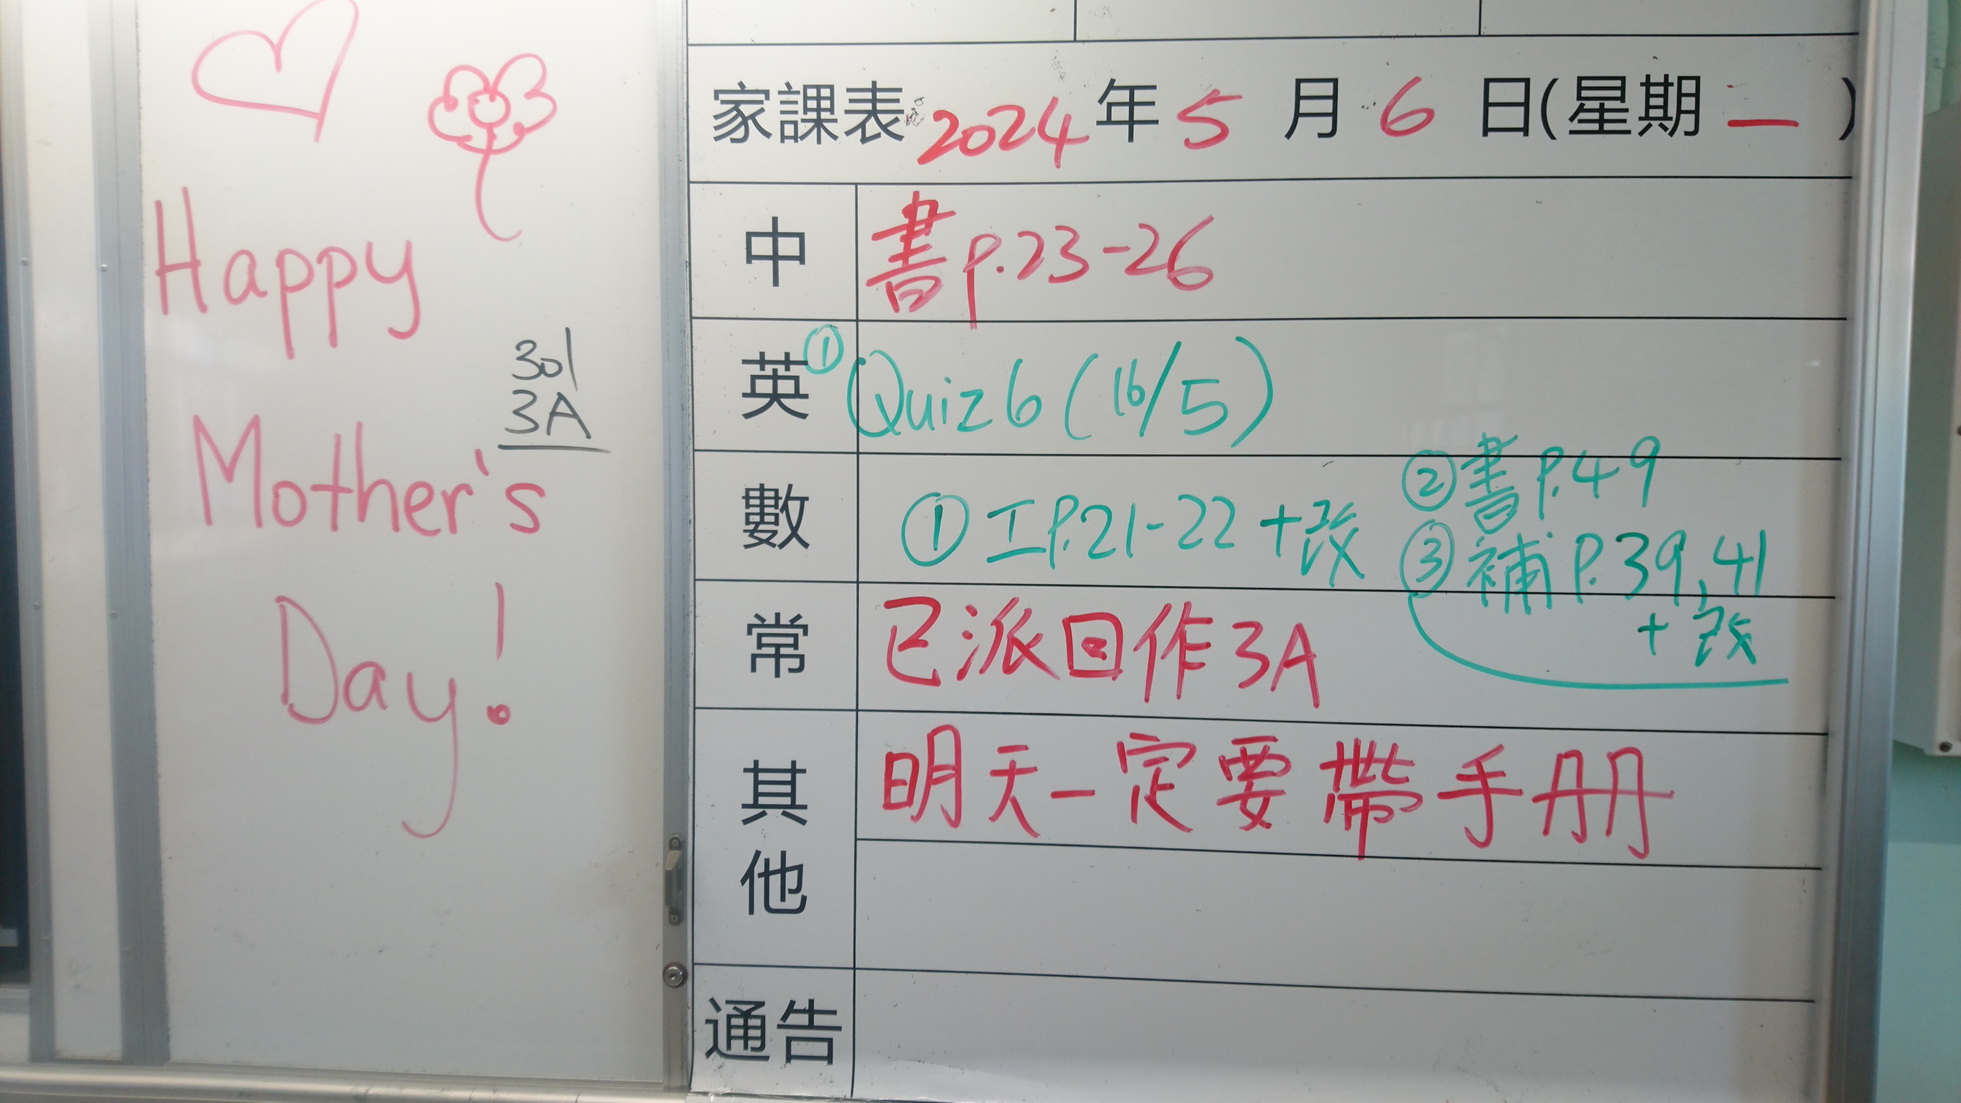 Happy
301
3A
Mother's
Day!
家課表 2024 年 5 月 6 日(星期一)
中 書 p.23-26
英 ① Quiz 6 (16/5)
數 ① 工 P.21-22 + 改
② 書 P.49
③ 補 P.39, 41
+ 改
常 已派回作3A
其他 明天一定要帶手册
通告